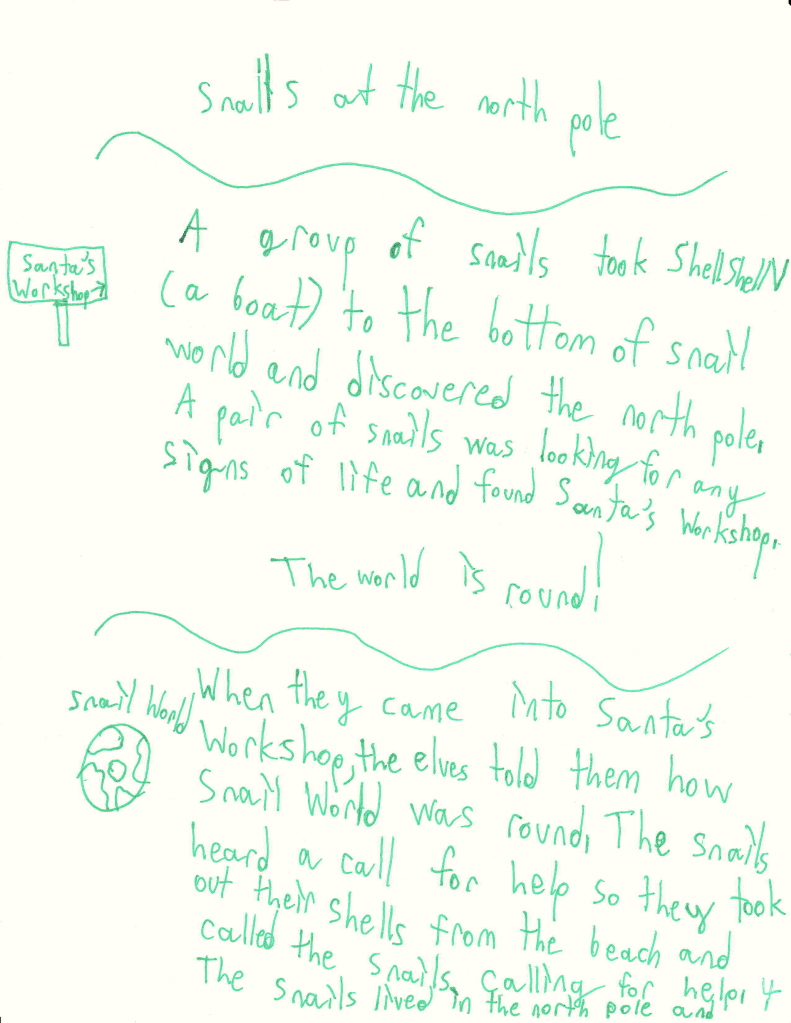 snails at the north pole
Santa's
Workshop→
A group of snails took ShellShellV
(a boat) to the bottom of snail
world and discovered the north pole.
A pair of snails was looking for any
signs of life and found Santa's Workshop.
The world is round!
Snail World
When they came into Santa's
Workshop, the elves told them how
Snail World was round. The snails
heard a call for help so they took
out their shells from the beach and
called the snails calling for help. 4
The snails lived in the north pole and